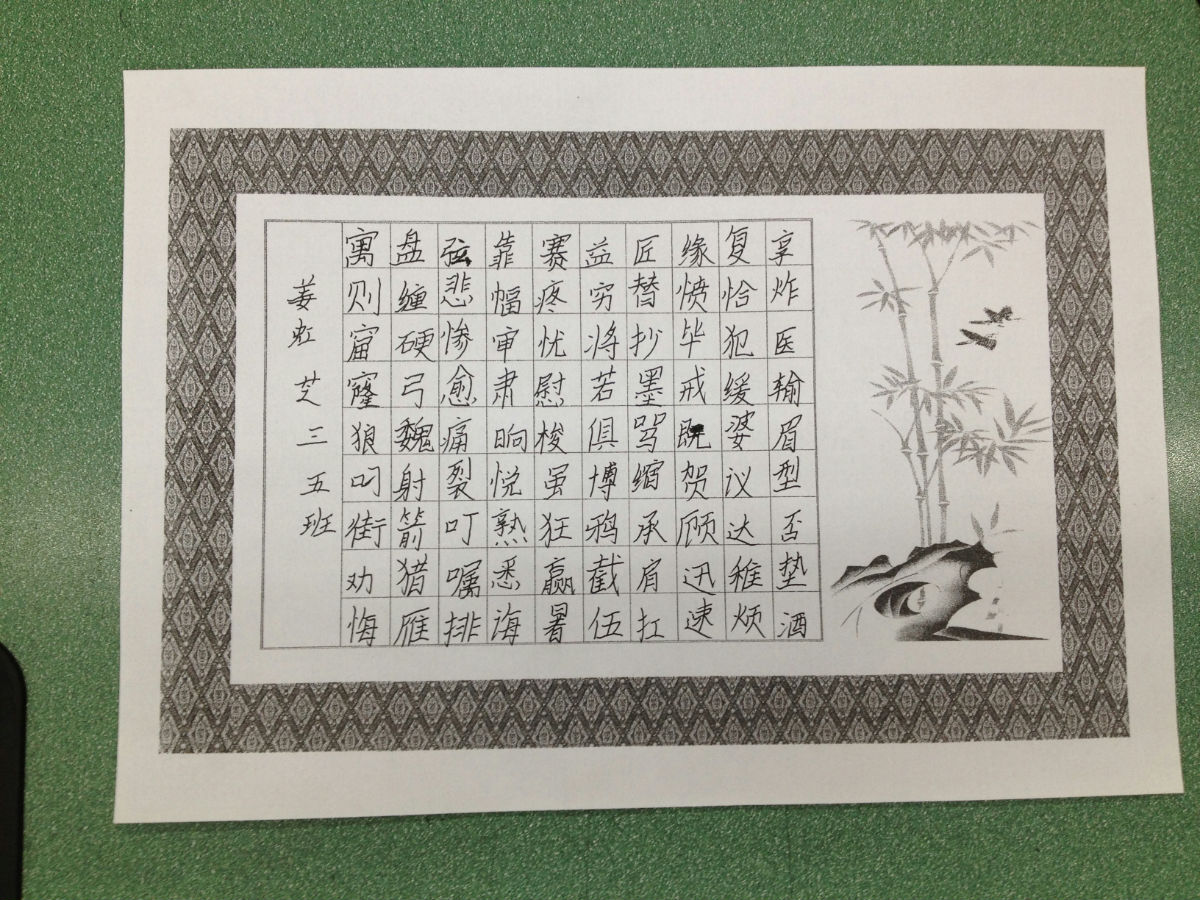 姜虹芝三五班
寓则窟窿狼叼街劝悔
盘缠硬弓魏射箭猎雁
弦悲惨愈痛裂叮嘱排
靠幅审肃晌悦熟悉诲
赛疼忧慰梭虽狂赢暑
益穷将若俱博鸦截伍
匠替抄墨驾缩承肩扛
缘愤毕戒既贺顾迅速
复恰犯缓婆议达稚烦
享炸医输眉型否垫酒